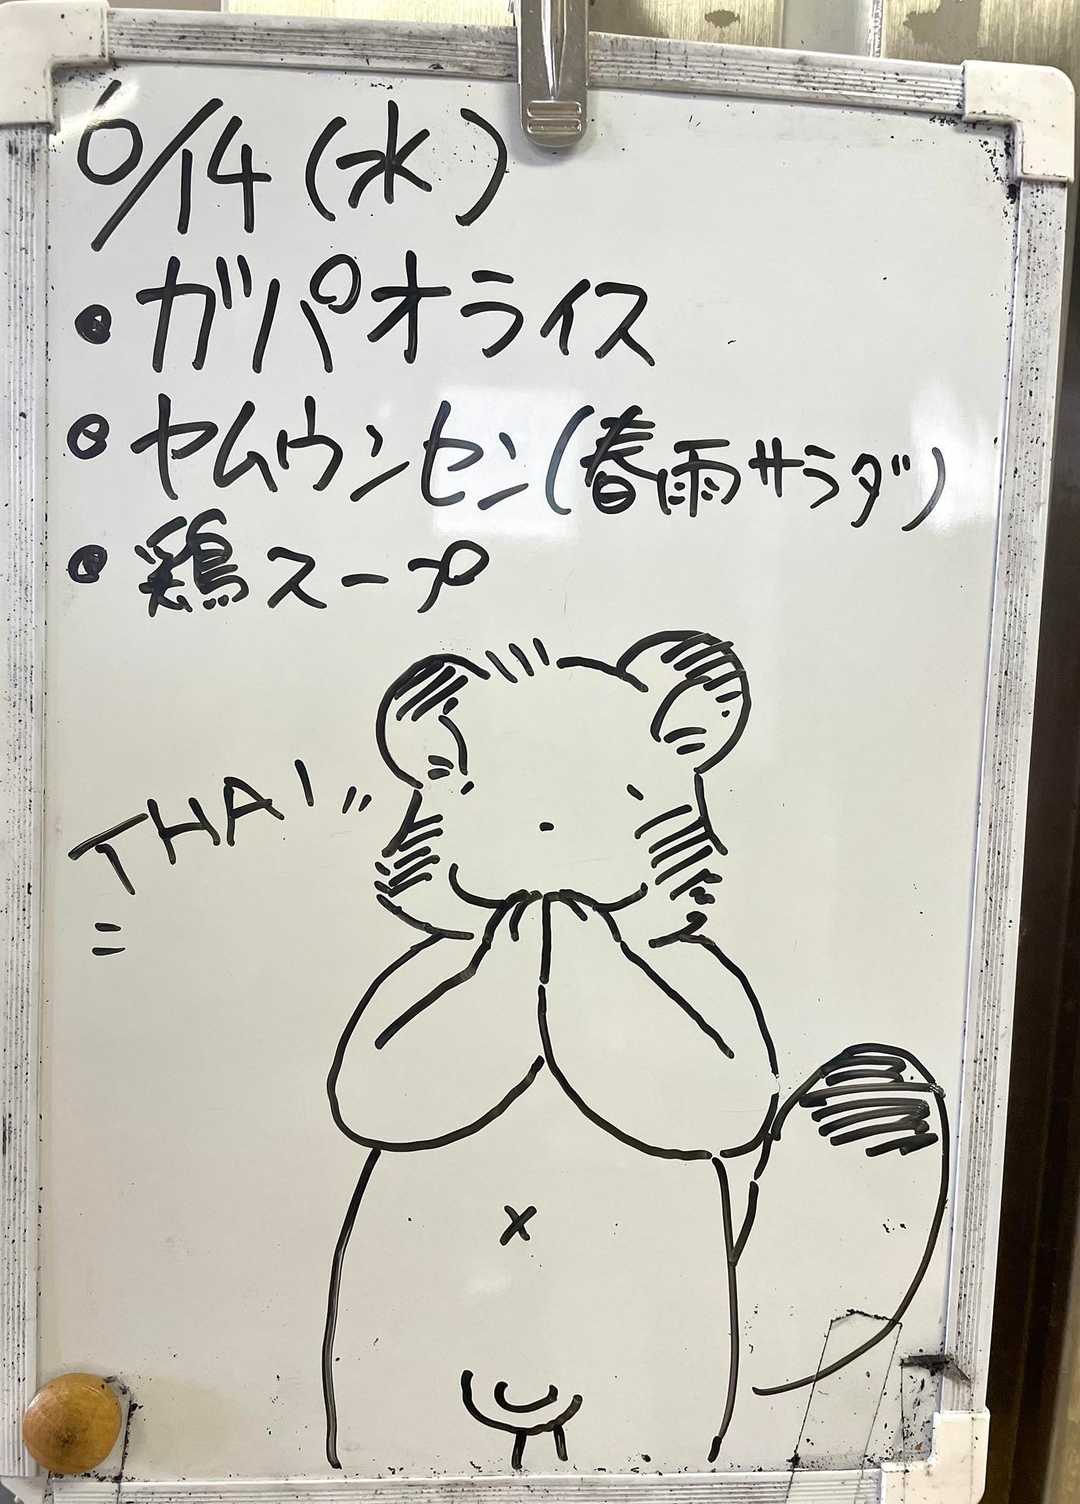 6/14(水)
・ガパオライス
・ヤムウンセン(春雨サラダ)
・鶏スープ
THAI